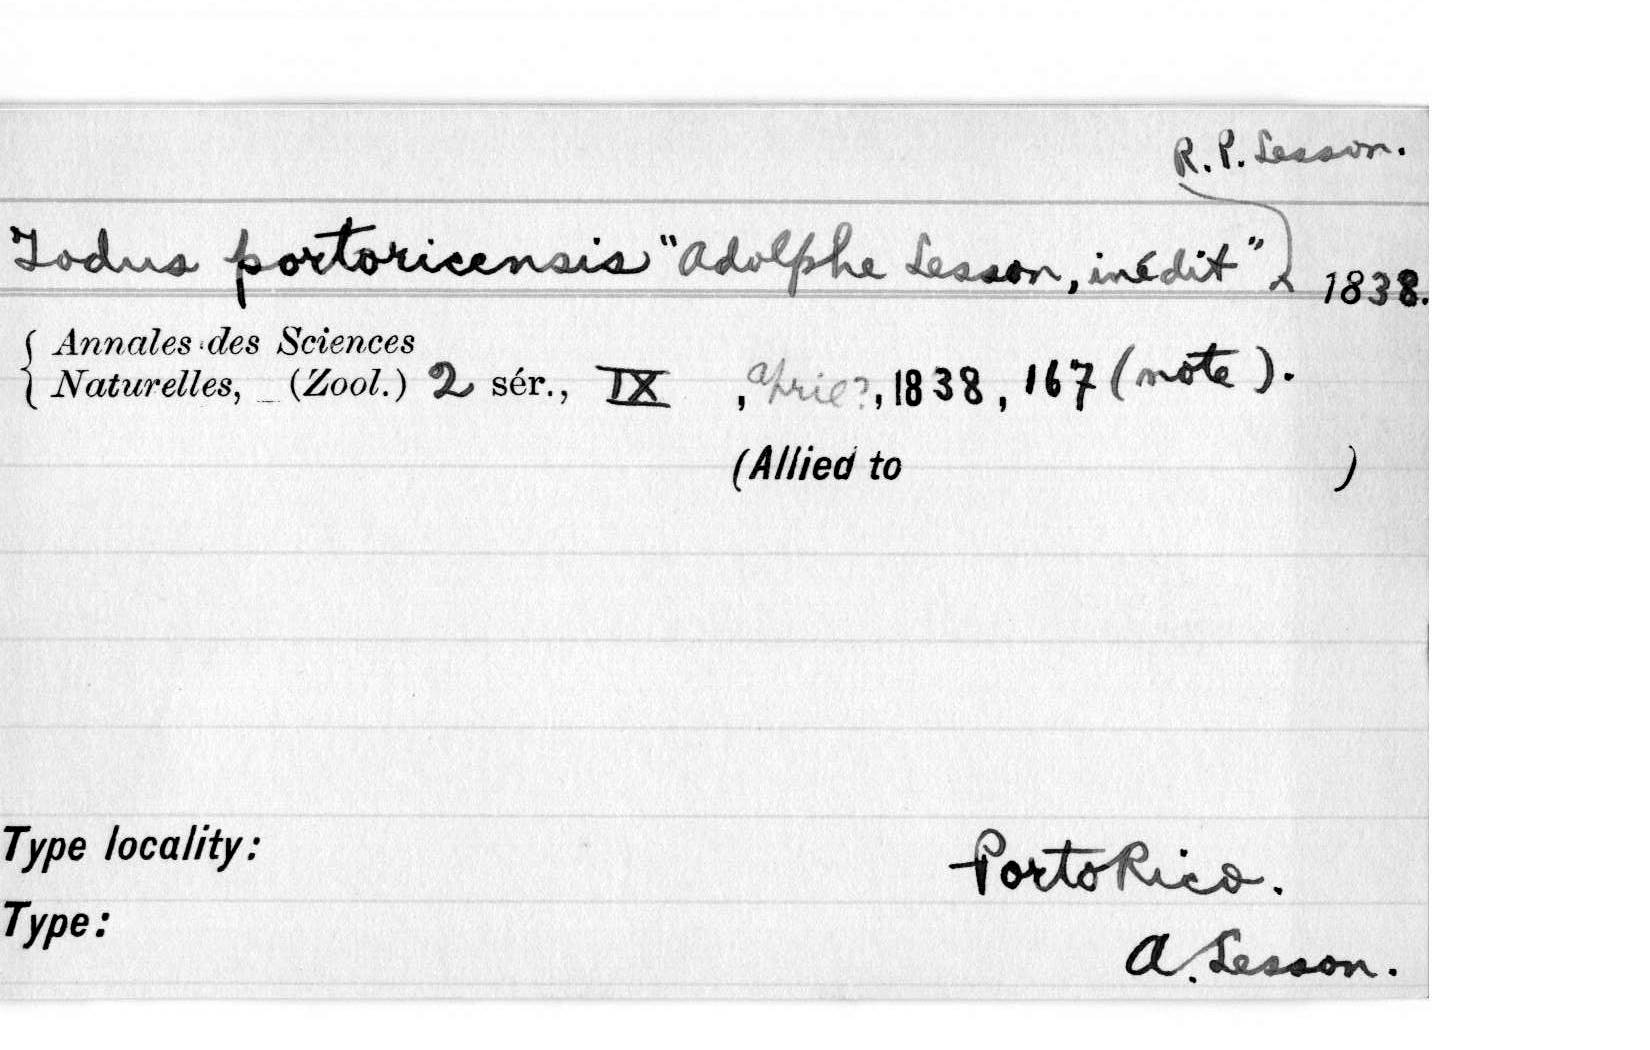 R. P. Lesson.
Todus portoricensis "Adolphe Lesson, inédit" 1838.
Annales des Sciences
Naturelles, _ (Zool.) 2 sér., IX , april?, 1838, 167 (note).
(Allied to )
Type locality: Porto Rico.
Type: A. Lesson.